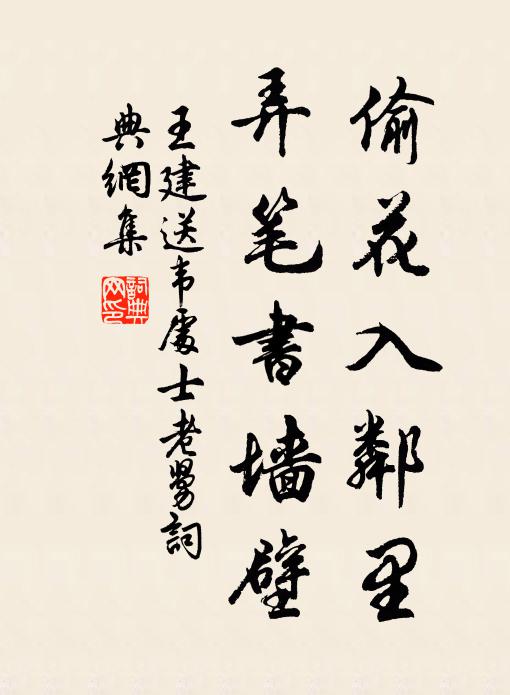 偷花入鄰里
弄笔書墙壁
王建送韦處士老舅詞
典網集
詞典网印